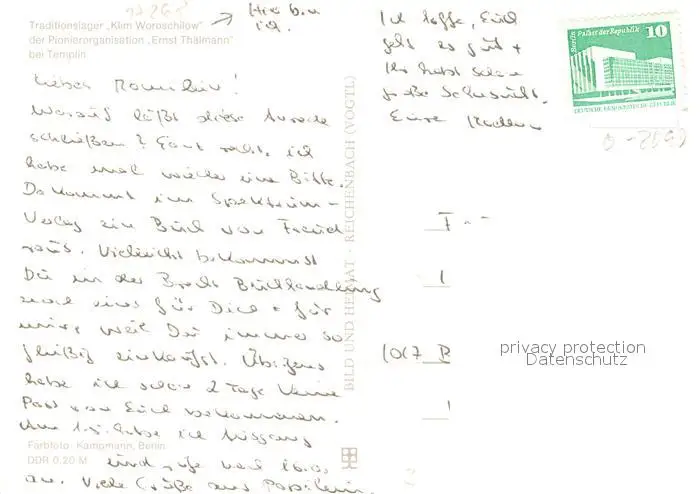 Traditionslager „Klim Woroschilow"
der Pionierorganisation „Ernst Thälmann"
bei Templin
Hier bin
ich.
Liebes
Worauf läßt diese Anrede
schließen? Ganz recht, ich
habe mal wieder eine Bitte.
Da kommt im Spektrum-
Verlag ein Buch von Freud
raus. Vielleicht bekommst
Du in der Brecht Buchhandlung
noch eins für Dich + für
mich, weil Du immer so
fleißig einkaufst. Übrigens
habe ich schon 2 Tage keine
Post von Euch bekommen.
habe ich Ausgang
und rufe
an. Viele Grüße aus
Ich hoffe, Euch
geht es gut +
Ihr habt schon
große Sehnsucht.
Eure
BILD UND HEIMAT · REICHENBACH (VOGTL)
Farbfoto: Kampmann, Berlin
DDR 0,20 M
Berlin Palast der Republik 10
DEUTSCHE DEMOKRATISCHE REPUBLIK
1017 B
privacy protection
Datenschutz